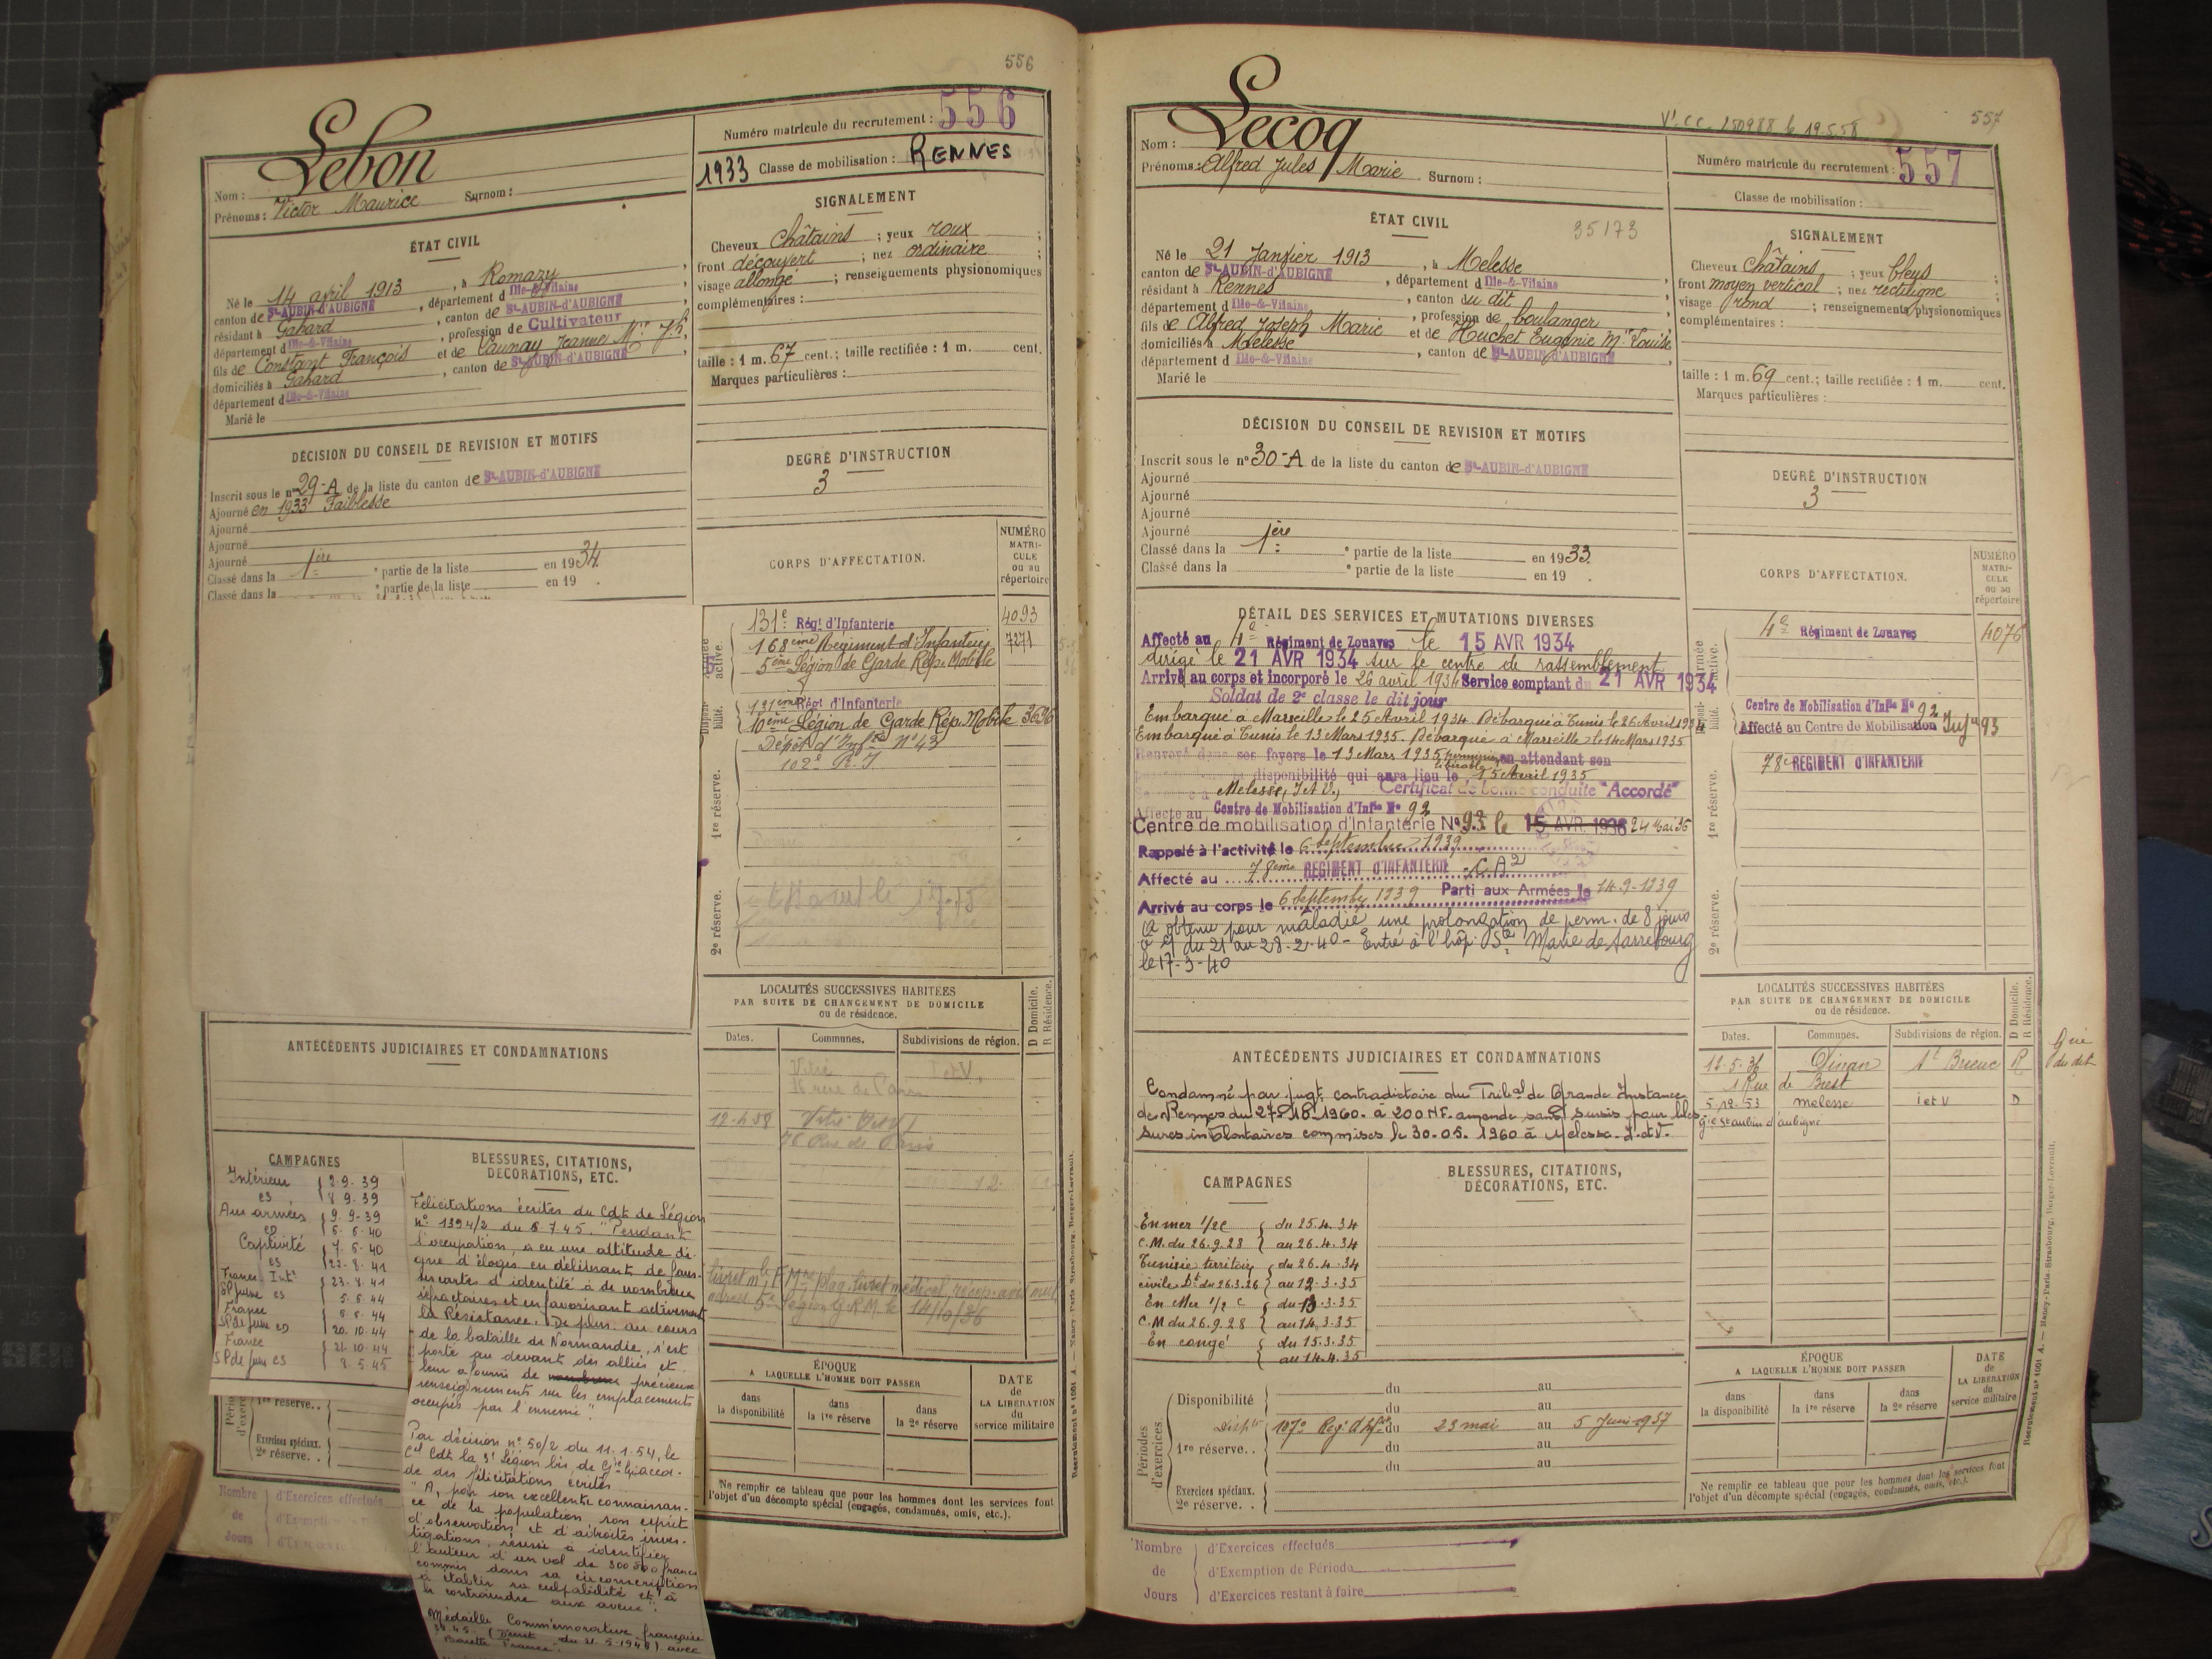 556
Lebon
Nom :
Prénoms : Victor Maurice Surnom :
Numéro matricule du recrutement : 556
1933 Classe de mobilisation : RENNES
ÉTAT CIVIL
Né le 14 avril 1913, à Romazy
canton de St-AUBIN-d'AUBIGNÉ, département d Ille-&-Vilaine
résidant à Gahard, canton de St-AUBIN-d'AUBIGNÉ
département d Ille-&-Vilaine, profession de Cultivateur
fils de Constant François et de Launay Jeanne
domiciliés à Gahard, canton de St-AUBIN-d'AUBIGNÉ
département d Ille-&-Vilaine
Marié le
SIGNALEMENT
Cheveux châtains ; yeux roux ;
front découvert ; nez ordinaire ;
visage allongé ; renseignements physionomiques
complémentaires :
taille : 1 m. 67 cent.; taille rectifiée : 1 m. cent.
Marques particulières :
DÉCISION DU CONSEIL DE REVISION ET MOTIFS
Inscrit sous le n° 29-A de la liste du canton de St-AUBIN-d'AUBIGNÉ
Ajourné en 1933 Faiblesse
Ajourné
Ajourné
Ajourné
Classé dans la 1ère partie de la liste en 1934.
Classé dans la e partie de la liste en 19 .
DEGRÉ D'INSTRUCTION
3
CORPS D'AFFECTATION.
NUMÉRO MATRICULE ou au répertoire
active.
131e Régt d'Infanterie 4093
168ème Régiment d'Infanterie 7271
5ème Légion de Garde Rép. Mobile
131ème Régt d'Infanterie
10ème Légion de Garde Rép. Mobile 3636
1re réserve.
Dépôt d'Infrie N° 43
102e R.I.
2e réserve.
LOCALITÉS SUCCESSIVES HABITÉES
PAR SUITE DE CHANGEMENT DE DOMICILE
ou de résidence.
Dates. Communes. Subdivisions de région. D Domicile. R Résidence.
Vitré I et V.
Vitré
Rue de Paris
ANTÉCÉDENTS JUDICIAIRES ET CONDAMNATIONS
CAMPAGNES
Intérieur 2-9-39
cs 8 9-39
Aux armées 9-9-39
6-6-40
Captivité 7-6-40
cs 22-8-41
23-8-41
5-6-44
France 6-6-44
20-10-44
France 21-10-44
8-5-45
BLESSURES, CITATIONS,
DÉCORATIONS, ETC.
Félicitations écrites du Cdt de Légion
n° 1394/2 du 6 7.45. "Pendant
l'occupation, a eu une attitude di-
gne d'éloges en délivrant de faus-
ses cartes d'identité à de nombreux
réfractaires et en favorisant activement
la Résistance. De plus, au cours
de la bataille de Normandie, s'est
porté au devant des alliés et
leur a fourni de précieux
renseignements sur les emplacements
occupés par l'ennemi".
Par décision n° 50/2 du 11-1-54, le
de des félicitations écrites
"A, par son excellente connaissan-
ce de la population, son esprit
d'observation et d'adroites inves-
tigations, réussi à identifier
l'auteur d'un vol de 300 000 francs
commis dans sa circonscription
à établir sa culpabilité et à
le contraindre aux aveux".
Médaille Commémorative française
39-45 avec
Barrette "France".
1re réserve. .
Exercices spéciaux.
2e réserve. .
Nombre de Jours
d'Exercices effectués
ÉPOQUE
A LAQUELLE L'HOMME DOIT PASSER
dans la disponibilité
dans la 1re réserve
dans la 2e réserve
DATE de LA LIBÉRATION du service militaire
Ne remplir ce tableau que pour les hommes dont les services font
l'objet d'un décompte spécial (engagés, condamnés, omis, etc.).
557
Lecoq
Nom :
Prénoms : Alfred Jules Marie Surnom :
Numéro matricule du recrutement : 557
Classe de mobilisation :
ÉTAT CIVIL
35173
Né le 21 Janvier 1913, à Melesse
canton de St-AUBIN-d'AUBIGNÉ, département d Ille-&-Vilaine
résidant à Rennes, canton du dit
département d Ille-&-Vilaine, profession de boulanger
fils de Alfred Joseph Marie et de Huchet Eugénie Mie Louise
domiciliés à Melesse, canton de St-AUBIN-d'AUBIGNÉ
département d Ille-&-Vilaine
Marié le
SIGNALEMENT
Cheveux châtains ; yeux bleus ;
front moyen vertical ; nez rectiligne ;
visage rond ; renseignements physionomiques
complémentaires :
taille : 1 m. 69 cent.; taille rectifiée : 1 m. cent.
Marques particulières :
DÉCISION DU CONSEIL DE REVISION ET MOTIFS
Inscrit sous le n° 30-A de la liste du canton de St-AUBIN-d'AUBIGNÉ
Ajourné
Ajourné
Ajourné
Ajourné
Classé dans la 1ère partie de la liste en 1933.
Classé dans la e partie de la liste en 19 .
DEGRÉ D'INSTRUCTION
3
DÉTAIL DES SERVICES ET MUTATIONS DIVERSES
Affecté au 4e Régiment de Zouaves le 15 AVR 1934
dirigé le 21 AVR 1934 sur le centre de rassemblement
Arrivé au corps et incorporé le 26 avril 1934 Service comptant du 21 AVR 1934
Soldat de 2e classe le dit jour
Embarqué à Marseille le 25 Avril 1934. Débarqué à Tunis le 26 Avril 1934
Embarqué à Tunis le 13 Mars 1935. Débarqué à Marseille le 14 Mars 1935
Renvoyé dans ses foyers le 13 Mars 1935 en attendant son
disponibilité qui aura lieu le 15 Avril 1935
Melesse, I et V. Certificat de bonne conduite "Accordé"
Affecté au Centre de Mobilisation d'Infie N° 92
Centre de mobilisation d'Infanterie N° 93 le 15 AVR. 1936 24 Mai 36
Rappelé à l'activité le 6 Septembre 1939
Affecté au 78ème REGIMENT D'INFANTERIE CA2
Arrivé au corps le 6 Septembre 1939 Parti aux Armées le 14-9-1939
A obtenu pour maladie une prolongation de perm. de 8 jours
du 21 au 28-2-40 - Entré à l'hôp. Ste Marie de Sarrebourg
le 17-3-40
CORPS D'AFFECTATION.
NUMÉRO MATRICULE ou au répertoire
4e Régiment de Zouaves 4076
Centre de Mobilisation d'Infie N° 92
Affecté au Centre de Mobilisation Inf 93
1re réserve.
78e REGIMENT D'INFANTERIE
2e réserve.
LOCALITÉS SUCCESSIVES HABITÉES
PAR SUITE DE CHANGEMENT DE DOMICILE
ou de résidence.
Dates. Communes. Subdivisions de région. D Domicile. R Résidence.
12-5-36 Dinan St Brieuc R
1 Rue de Brest
5-12-53 Melesse I et V D
Gie St aubin d'aubigné
ANTÉCÉDENTS JUDICIAIRES ET CONDAMNATIONS
Condamné par jugt contradictoire du Tribal de Grande Instance
de Rennes du 1960 à 200 NF. amende sans sursis pour bles-
sures involontaires commises le 30-05-1960 à Melesse. I.etV.
CAMPAGNES
En mer 1/2 C du 25.4.34
C.M. du 26.9.28 au 26.4.34
Tunisie territoire du 26.4.34
civile Dt du 26.3.26 au 12.3.35
En Mer 1/2 C du 13.3.35
C.M du 26.9.28 au 14.3.35
En congé du 15.3.35
au 14.4.35
BLESSURES, CITATIONS,
DÉCORATIONS, ETC.
Périodes d'exercices.
Disponibilité du au
107e du 23 mai au 5 Juin 1937
1re réserve. . du au
du au
Exercices spéciaux.
2e réserve. .
ÉPOQUE
A LAQUELLE L'HOMME DOIT PASSER
dans la disponibilité
dans la 1re réserve
dans la 2e réserve
DATE de LA LIBÉRATION du service militaire
Ne remplir ce tableau que pour les hommes dont les services font
l'objet d'un décompte spécial (engagés, condamnés, omis, etc.).
Nombre de Jours
d'Exercices effectués
d'Exemption de Période
d'Exercices restant à faire